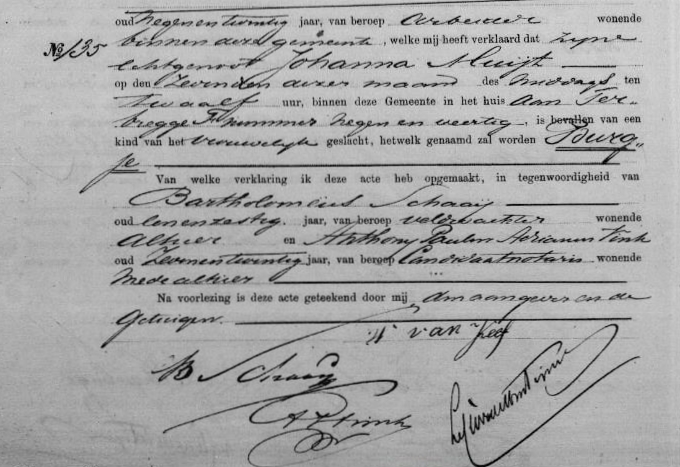 oud negenentwintig jaar, van beroep Arbeider wonende
No 135
binnen deze gemeente, welke mij heeft verklaard dat zijne
Echtgenoot Johanna Muijt
op den zevenden dezer maand des middags ten
twaalf uur, binnen deze Gemeente in het huis aan Ter-
bregge F nummer negen en veertig, is bevallen van een
kind van het vrouwelijk geslacht, hetwelk genaamd zal worden Burg„
je
Van welke verklaring ik deze acte heb opgemaakt, in tegenwoordigheid van
Bartholomeus Schaaij
oud eenenzestig jaar, van beroep veldwachter wonende
alhier en Anthony Paulus Adrianus Fink
oud zevenentwintig jaar, van beroep Candidaatnotaris wonende
mede alhier
Na voorlezing is deze acte geteekend door mij, den aangever en de
Getuigen.
van
B Schaaij
A P Fink